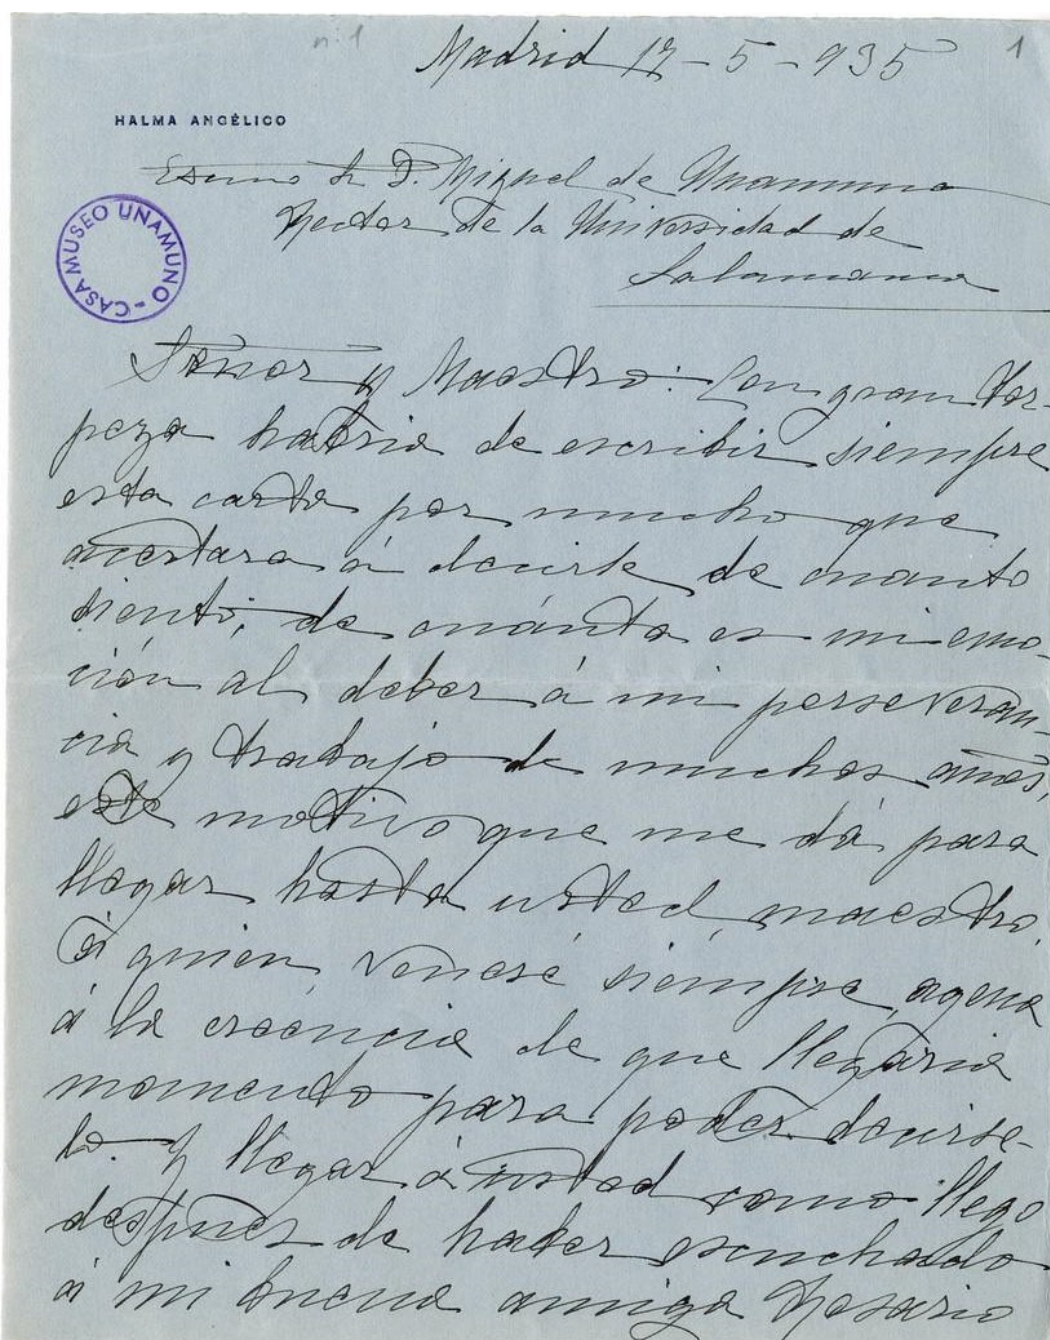 n. 1
Madrid 17-5-935
1
HALMA ANGÉLICO
Exmo Sr D. Miguel de Unamuno
Rector de la Universidad de
Salamanca
CASA MUSEO UNAMUNO -
Señor y Maestro: Con gran tor-
peza habria de escribir siempre
esta carta por mucho que
acertara á decirle de cuanto
siento; de cuánta es mi emo-
ción al deber á mi perseveran-
cia y trabajo de muchos años,
este motivo que me dá para
llegar hasta usted, maestro,
á quien veneré siempre, agena
á la creencia de que llegaria
momento para poder decirse-
lo. Y llegar á usted como llego
después de haber escuchado
á mi buena amiga Rosario